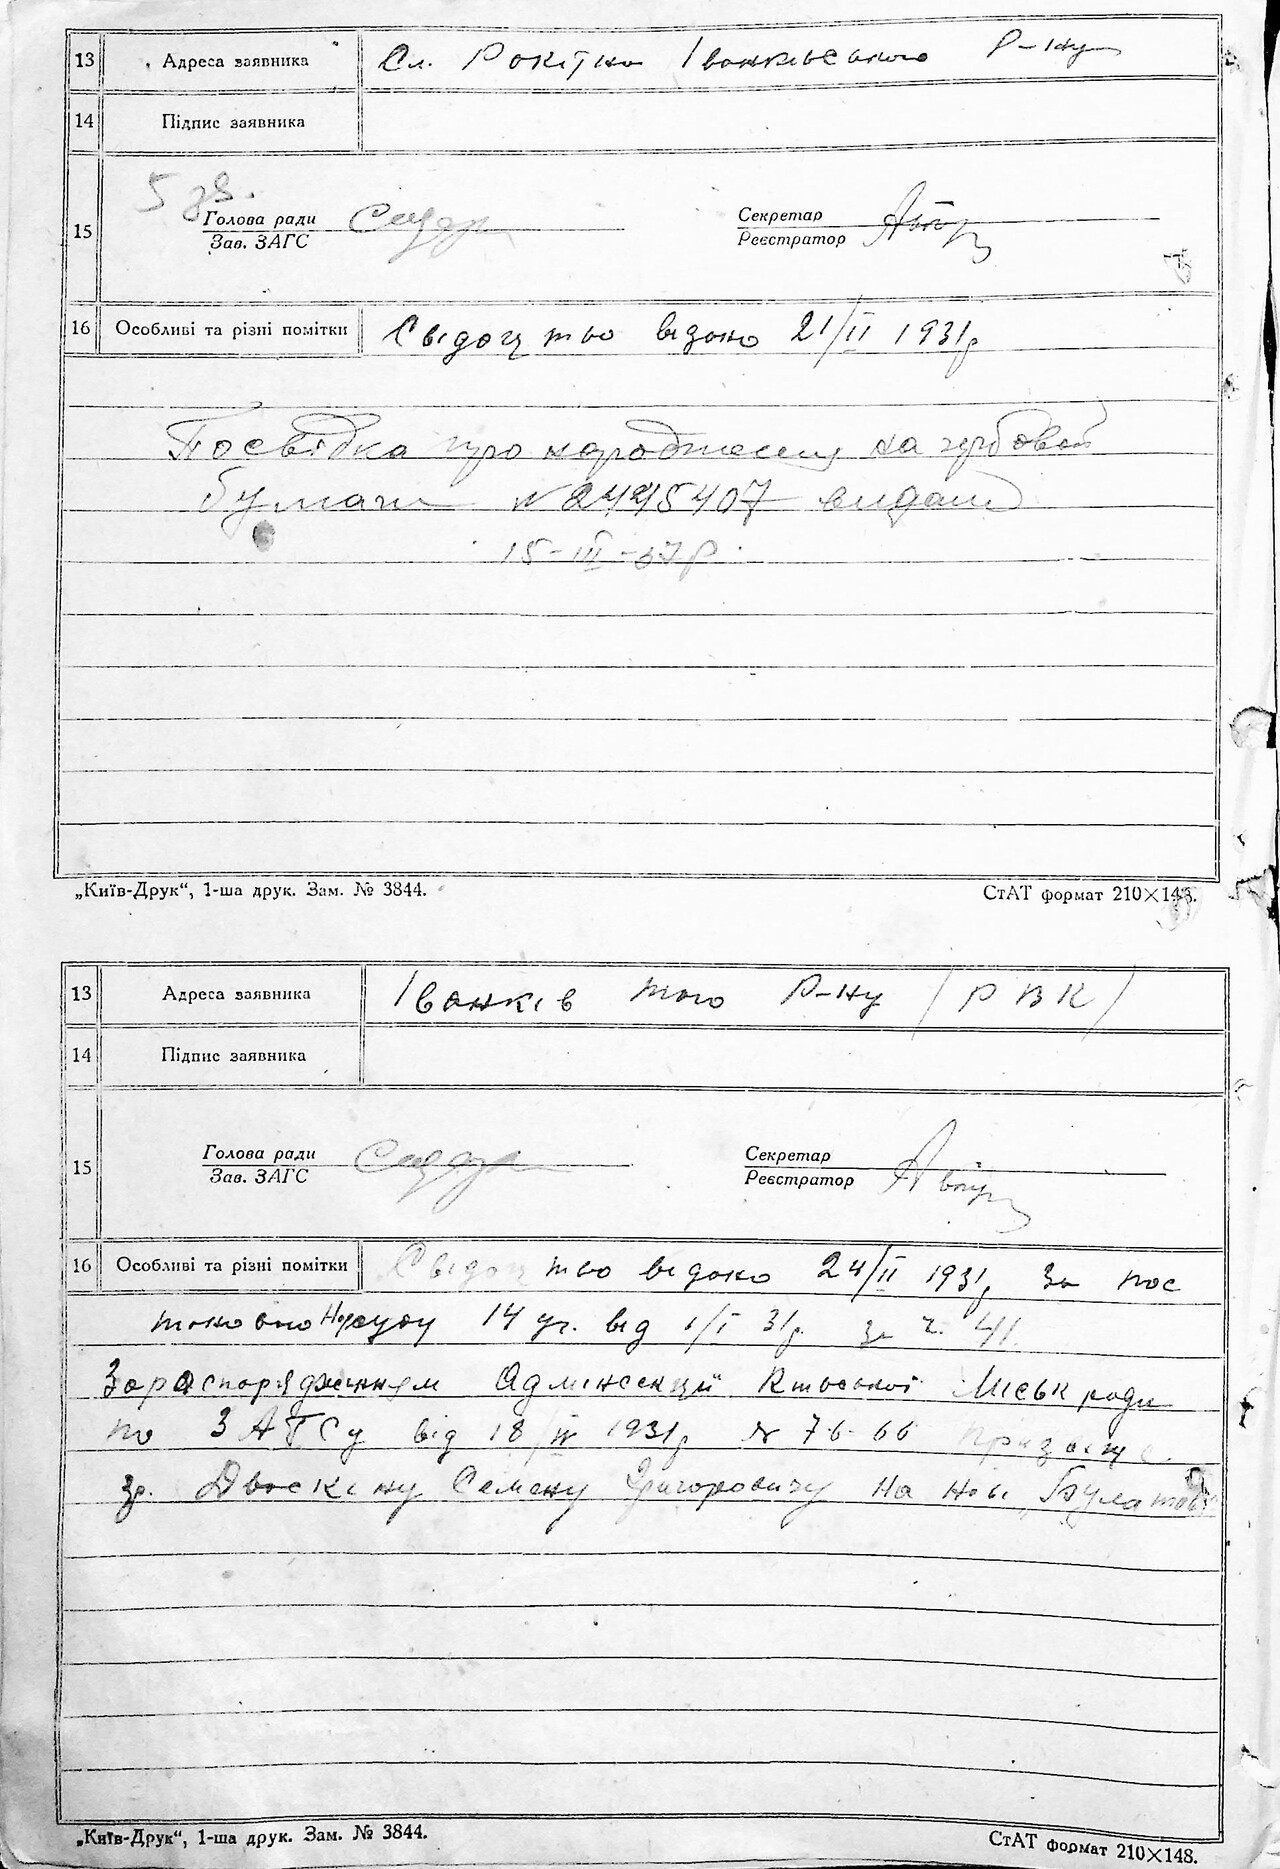 13 Адреса заявника Сл. Рокітна Іванківського Р-ну
14 Підпис заявника
5 зв.
15 Голова ради Секретар
Зав. ЗАГС Реєстратор
16 Особливі та різні помітки Свідоцтво відано 21/II 1931р
Посвідка про народження на гербовой
бумаги № 2445407 видана
15-III-37р.
„Київ-Друк“, 1-ша друк. Зам. № 3844. СтАТ формат 210×148.
13 Адреса заявника Іванків того Р-ну (РВК)
14 Підпис заявника
15 Голова ради Секретар
Зав. ЗАГС Реєстратор
16 Особливі та різні помітки Свідоцтво відано 24/II 1931р за пос
тановою Нарсуду 14 уч. від 1/I 31р. за ч. 41.
Зараспорядженням Адмінсекції Київської Міськ ради
по ЗАГСу від 18/IV 1931р № 76-66 призвище
гр. Двоскіну Семену Григоровичу на нові „Булатов“
„Київ-Друк“, 1-ша друк. Зам. № 3844. СтАТ формат 210×148.